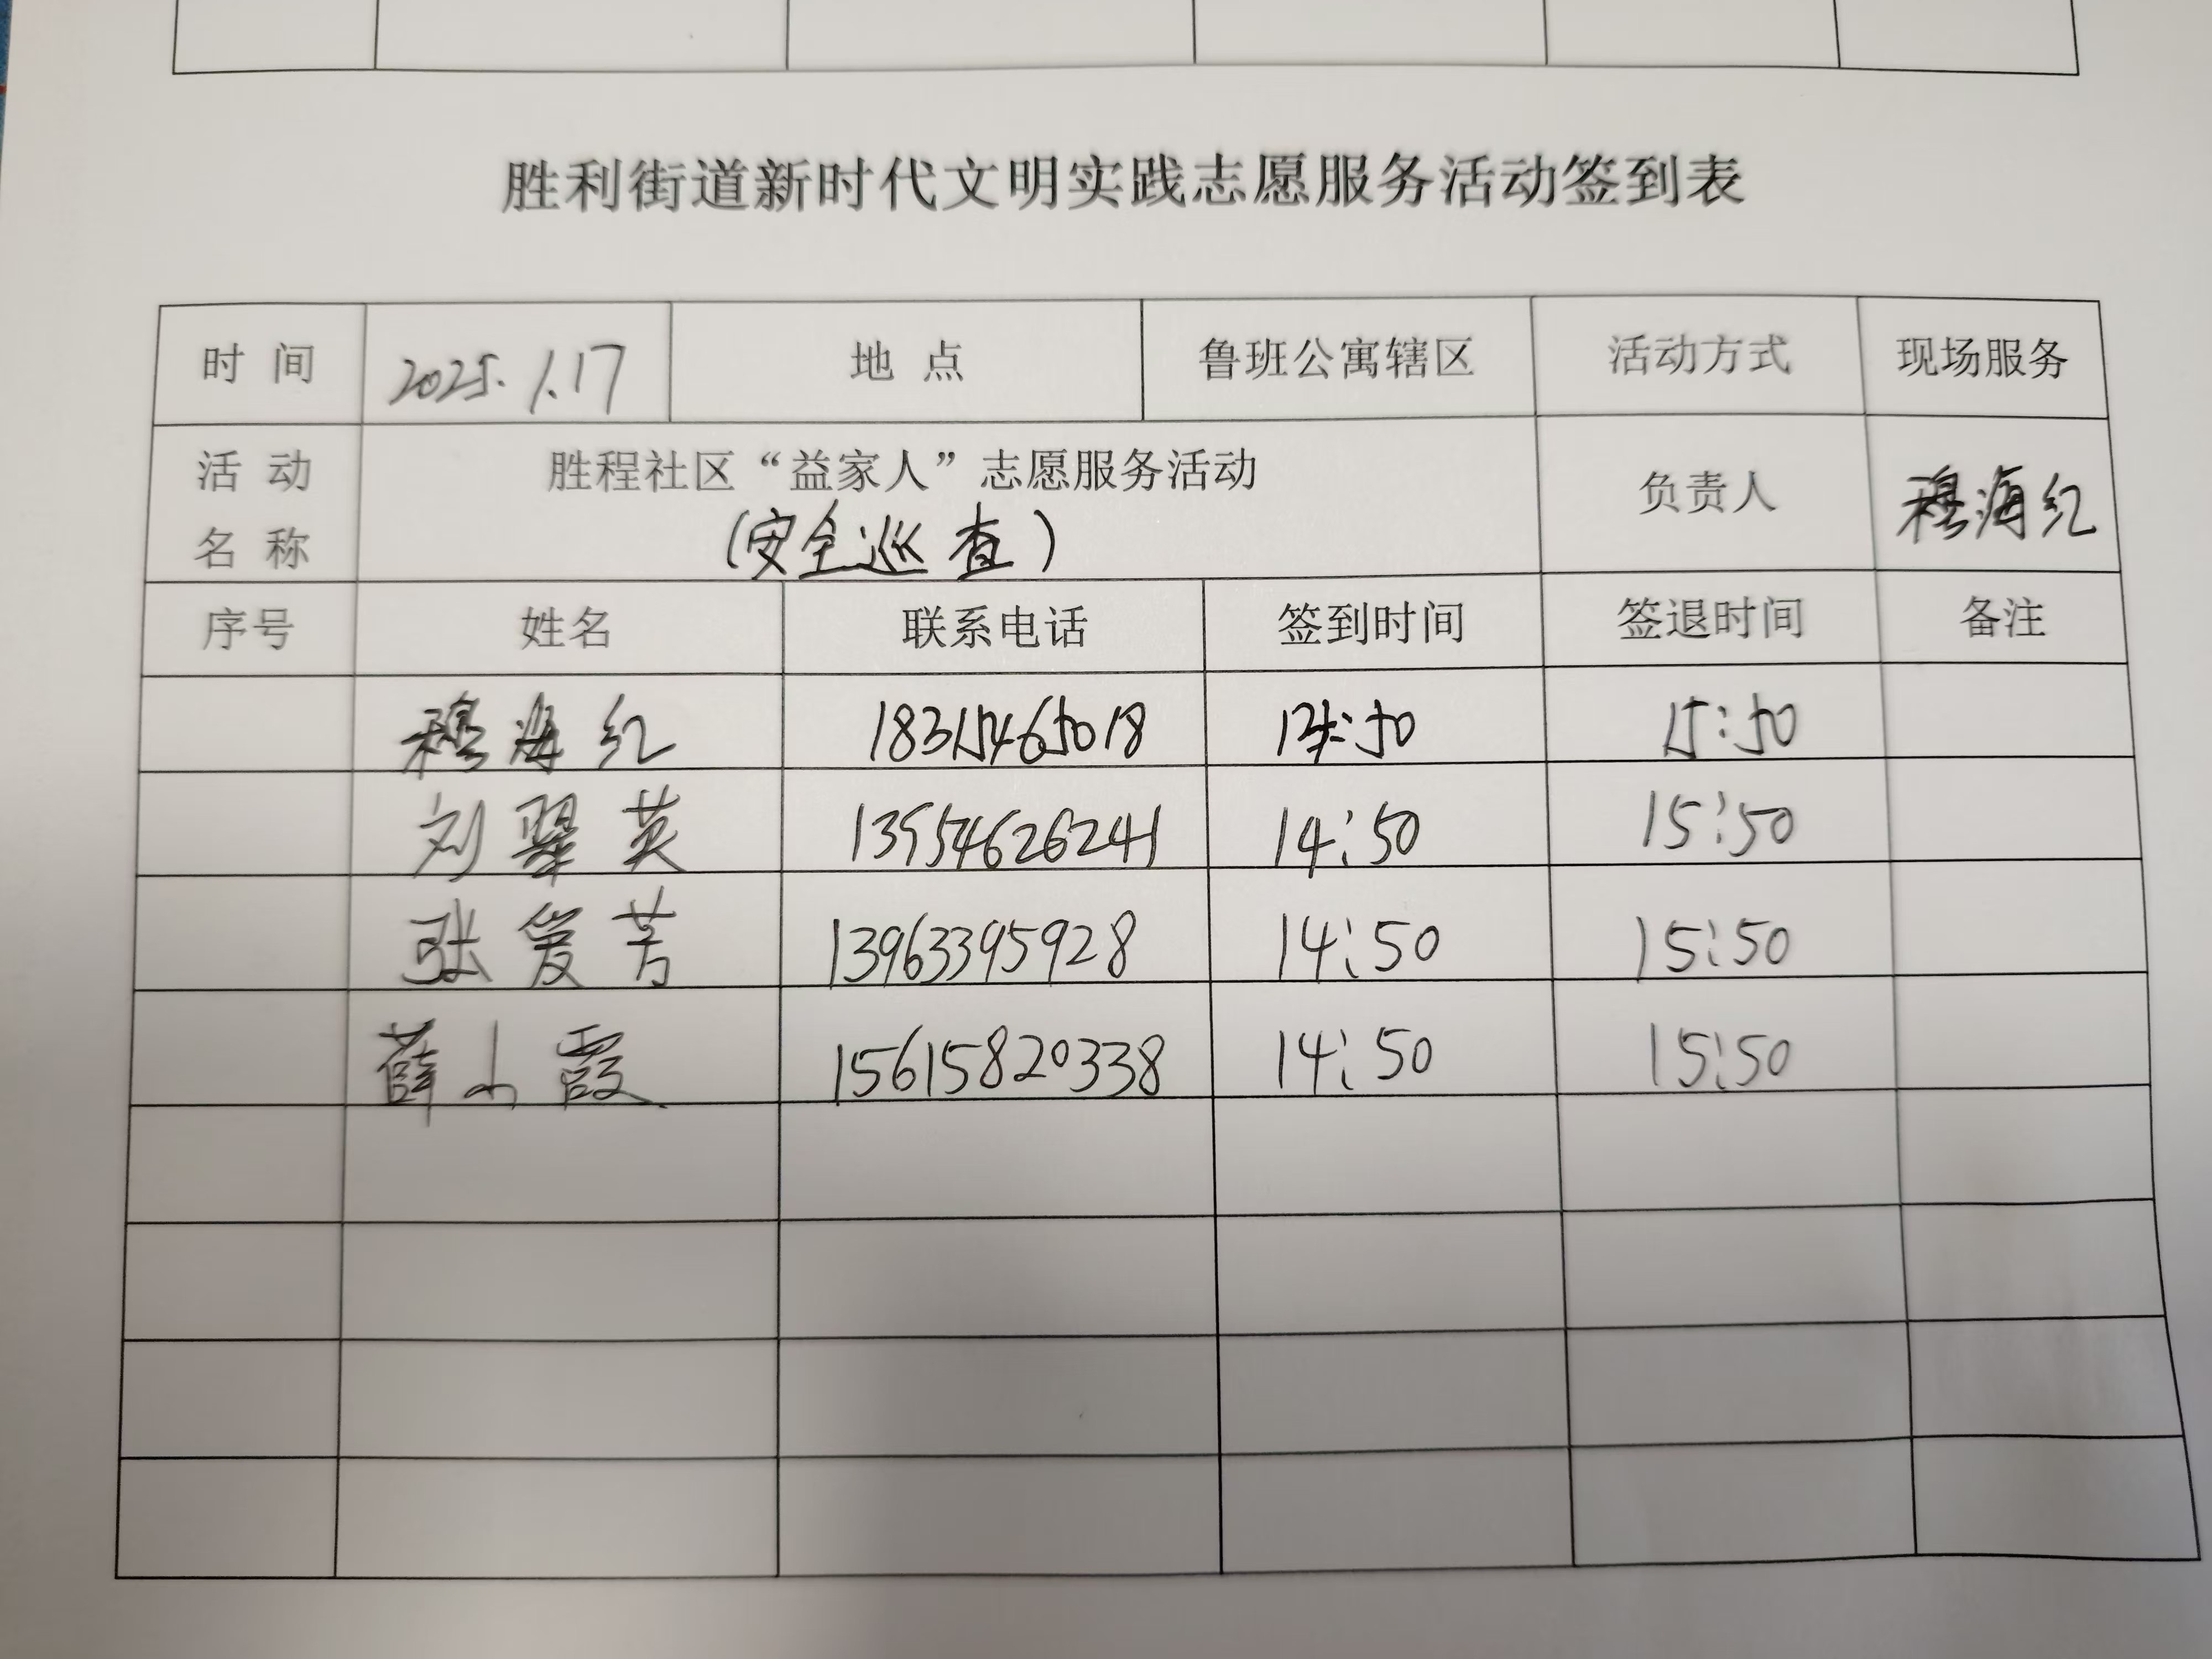 胜利街道新时代文明实践志愿服务活动签到表
时 间 2025.1.17 地 点 鲁班公寓辖区 活动方式 现场服务
活 动 名 称 胜程社区“益家人”志愿服务活动 (安全巡查) 负责人 穆海红
序号 姓名 联系电话 签到时间 签退时间 备注
穆海红 18315465018 14:50 15:50
刘翠英 13954626241 14:50 15:50
张爱芳 13963395928 14:50 15:50
薛小霞 15615820338 14:50 15:50